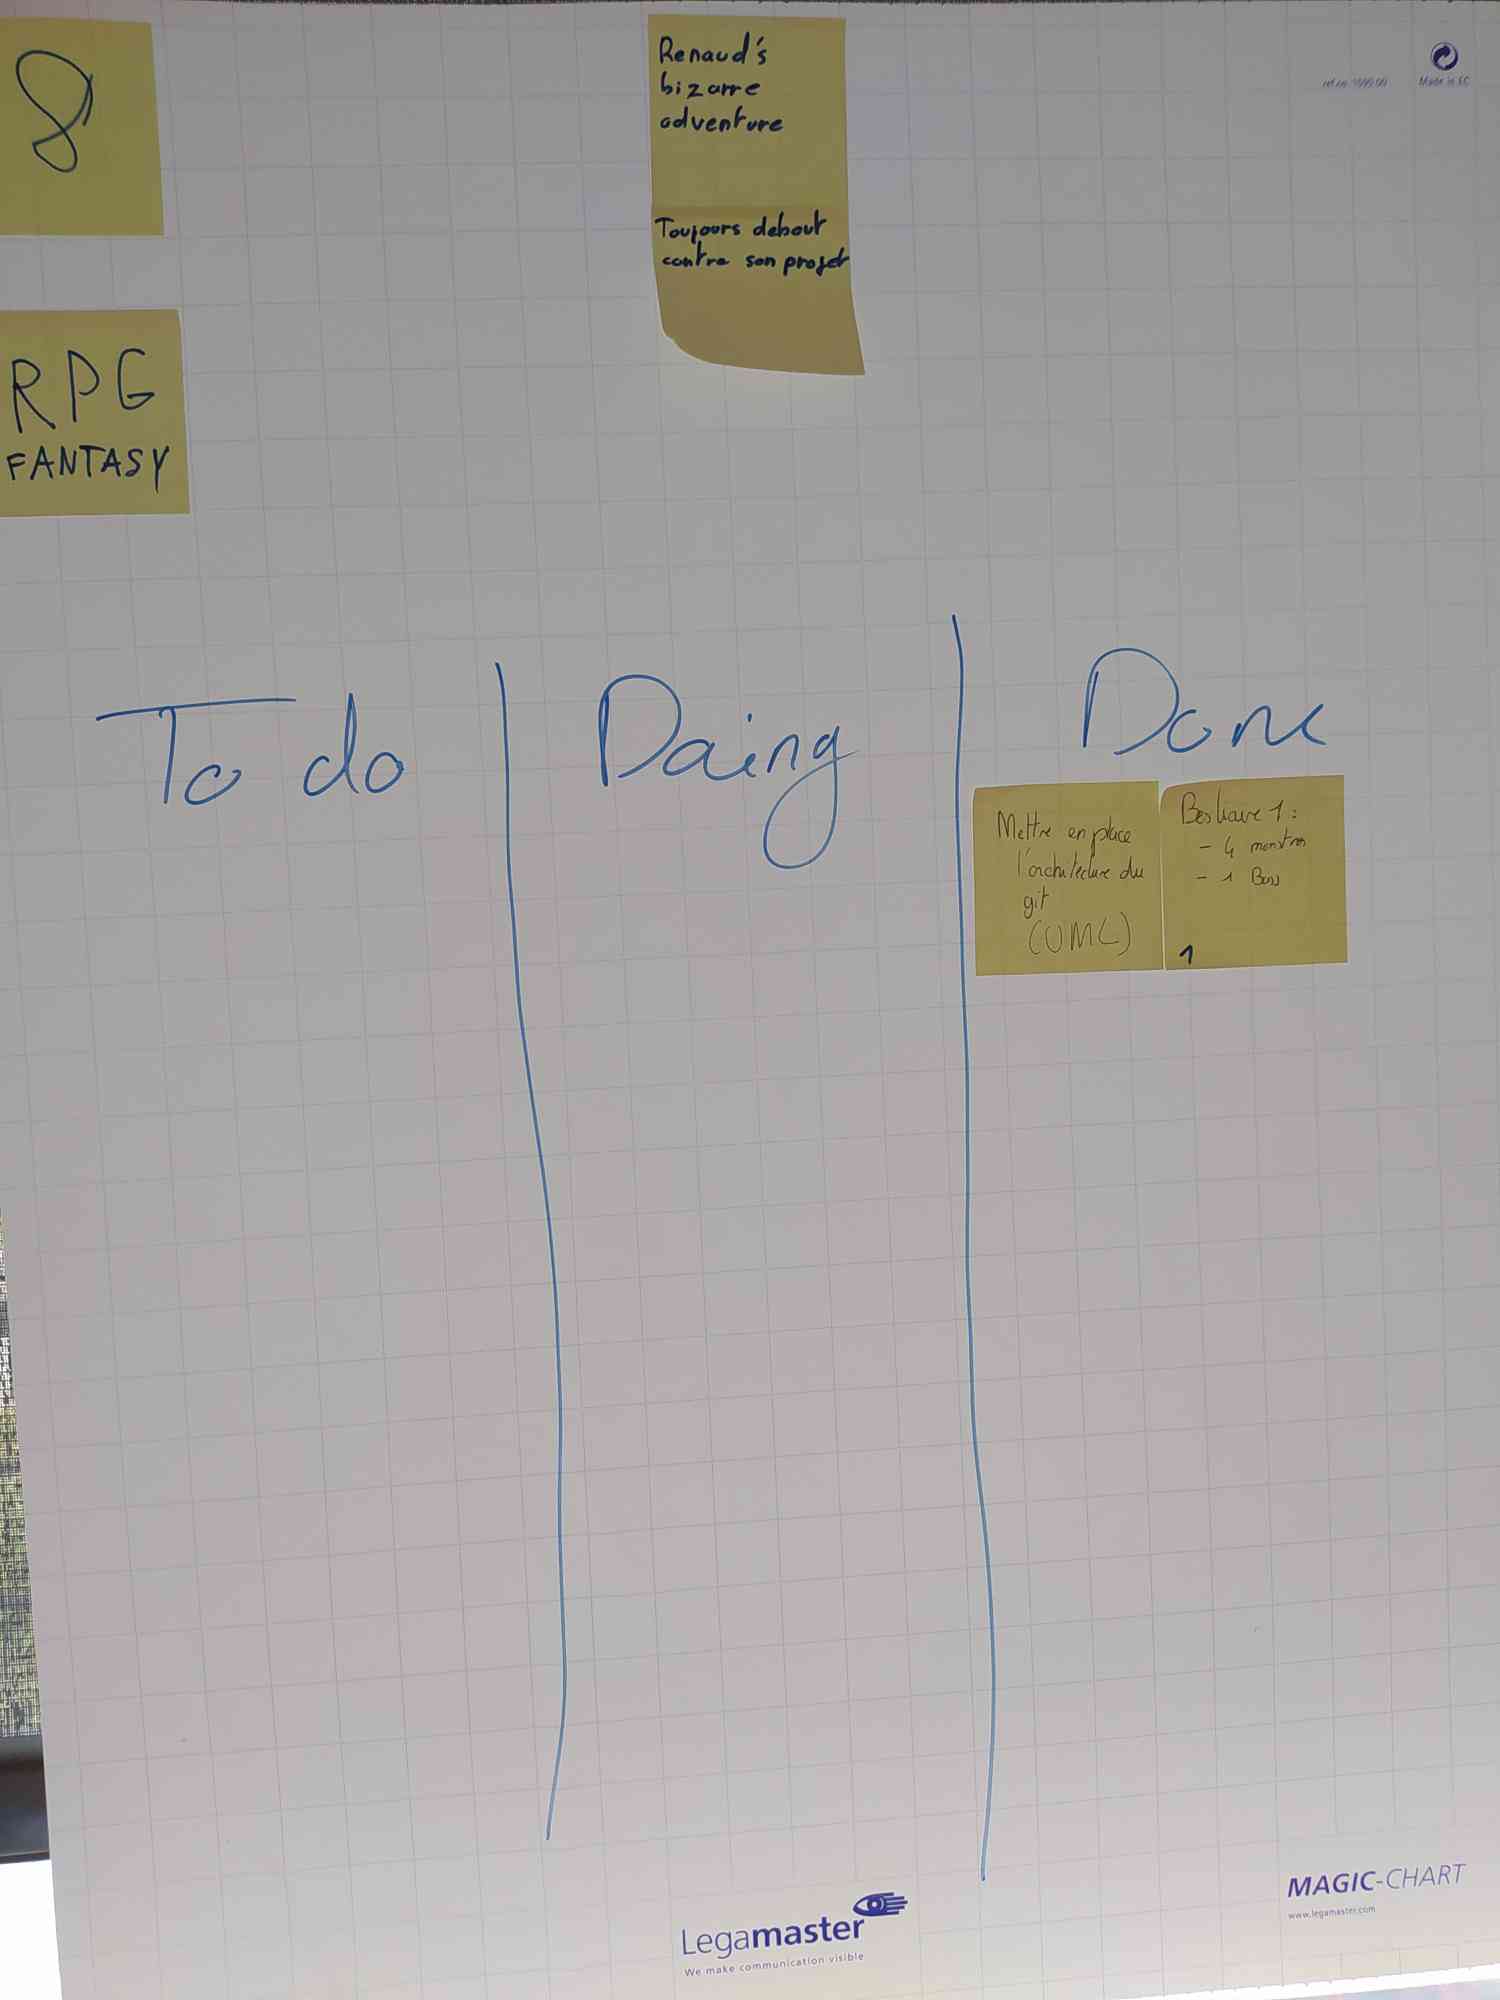 8
Renaud's
bizarre
adventure
Toujours debout
contre son projet
ref.no. 1599 00
Made in EC
RPG
FANTASY
To do
Doing
Done
Mettre en place
l'architecture du
git
(UML)
Bestiaire 1 :
- 4 monstres
- 1 Boss
1
Legamaster
We make communication visible
MAGIC-CHART
www.legamaster.com